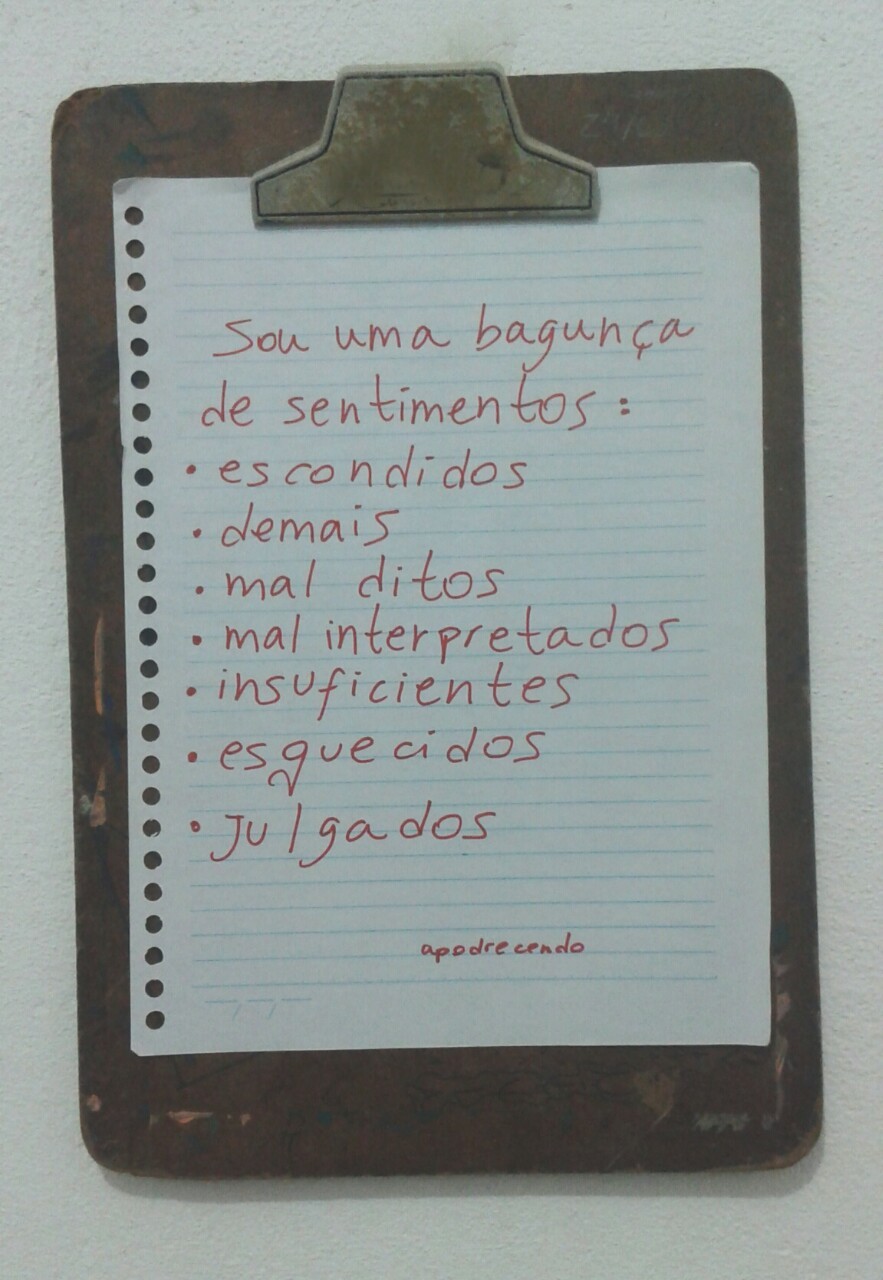 Sou uma bagunça
de sentimentos:
• escondidos
• demais
• mal ditos
• mal interpretados
• insuficientes
• esquecidos
• julgados
apodrecendo